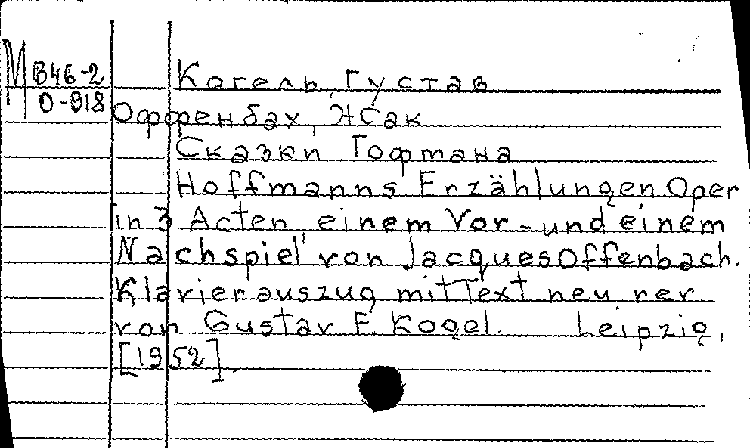 М В46-2 Когель, Густав
О-918
Оффенбах, Жак
Сказки Гофмана
Hoffmanns Erzählungen Oper
in 3 Acten, einem Vor- und einem
Nachspiel von Jacques Offenbach.
Klavierauszug mit Text neu rev
von Gustav F. Kogel. Leipzig,
[1952]